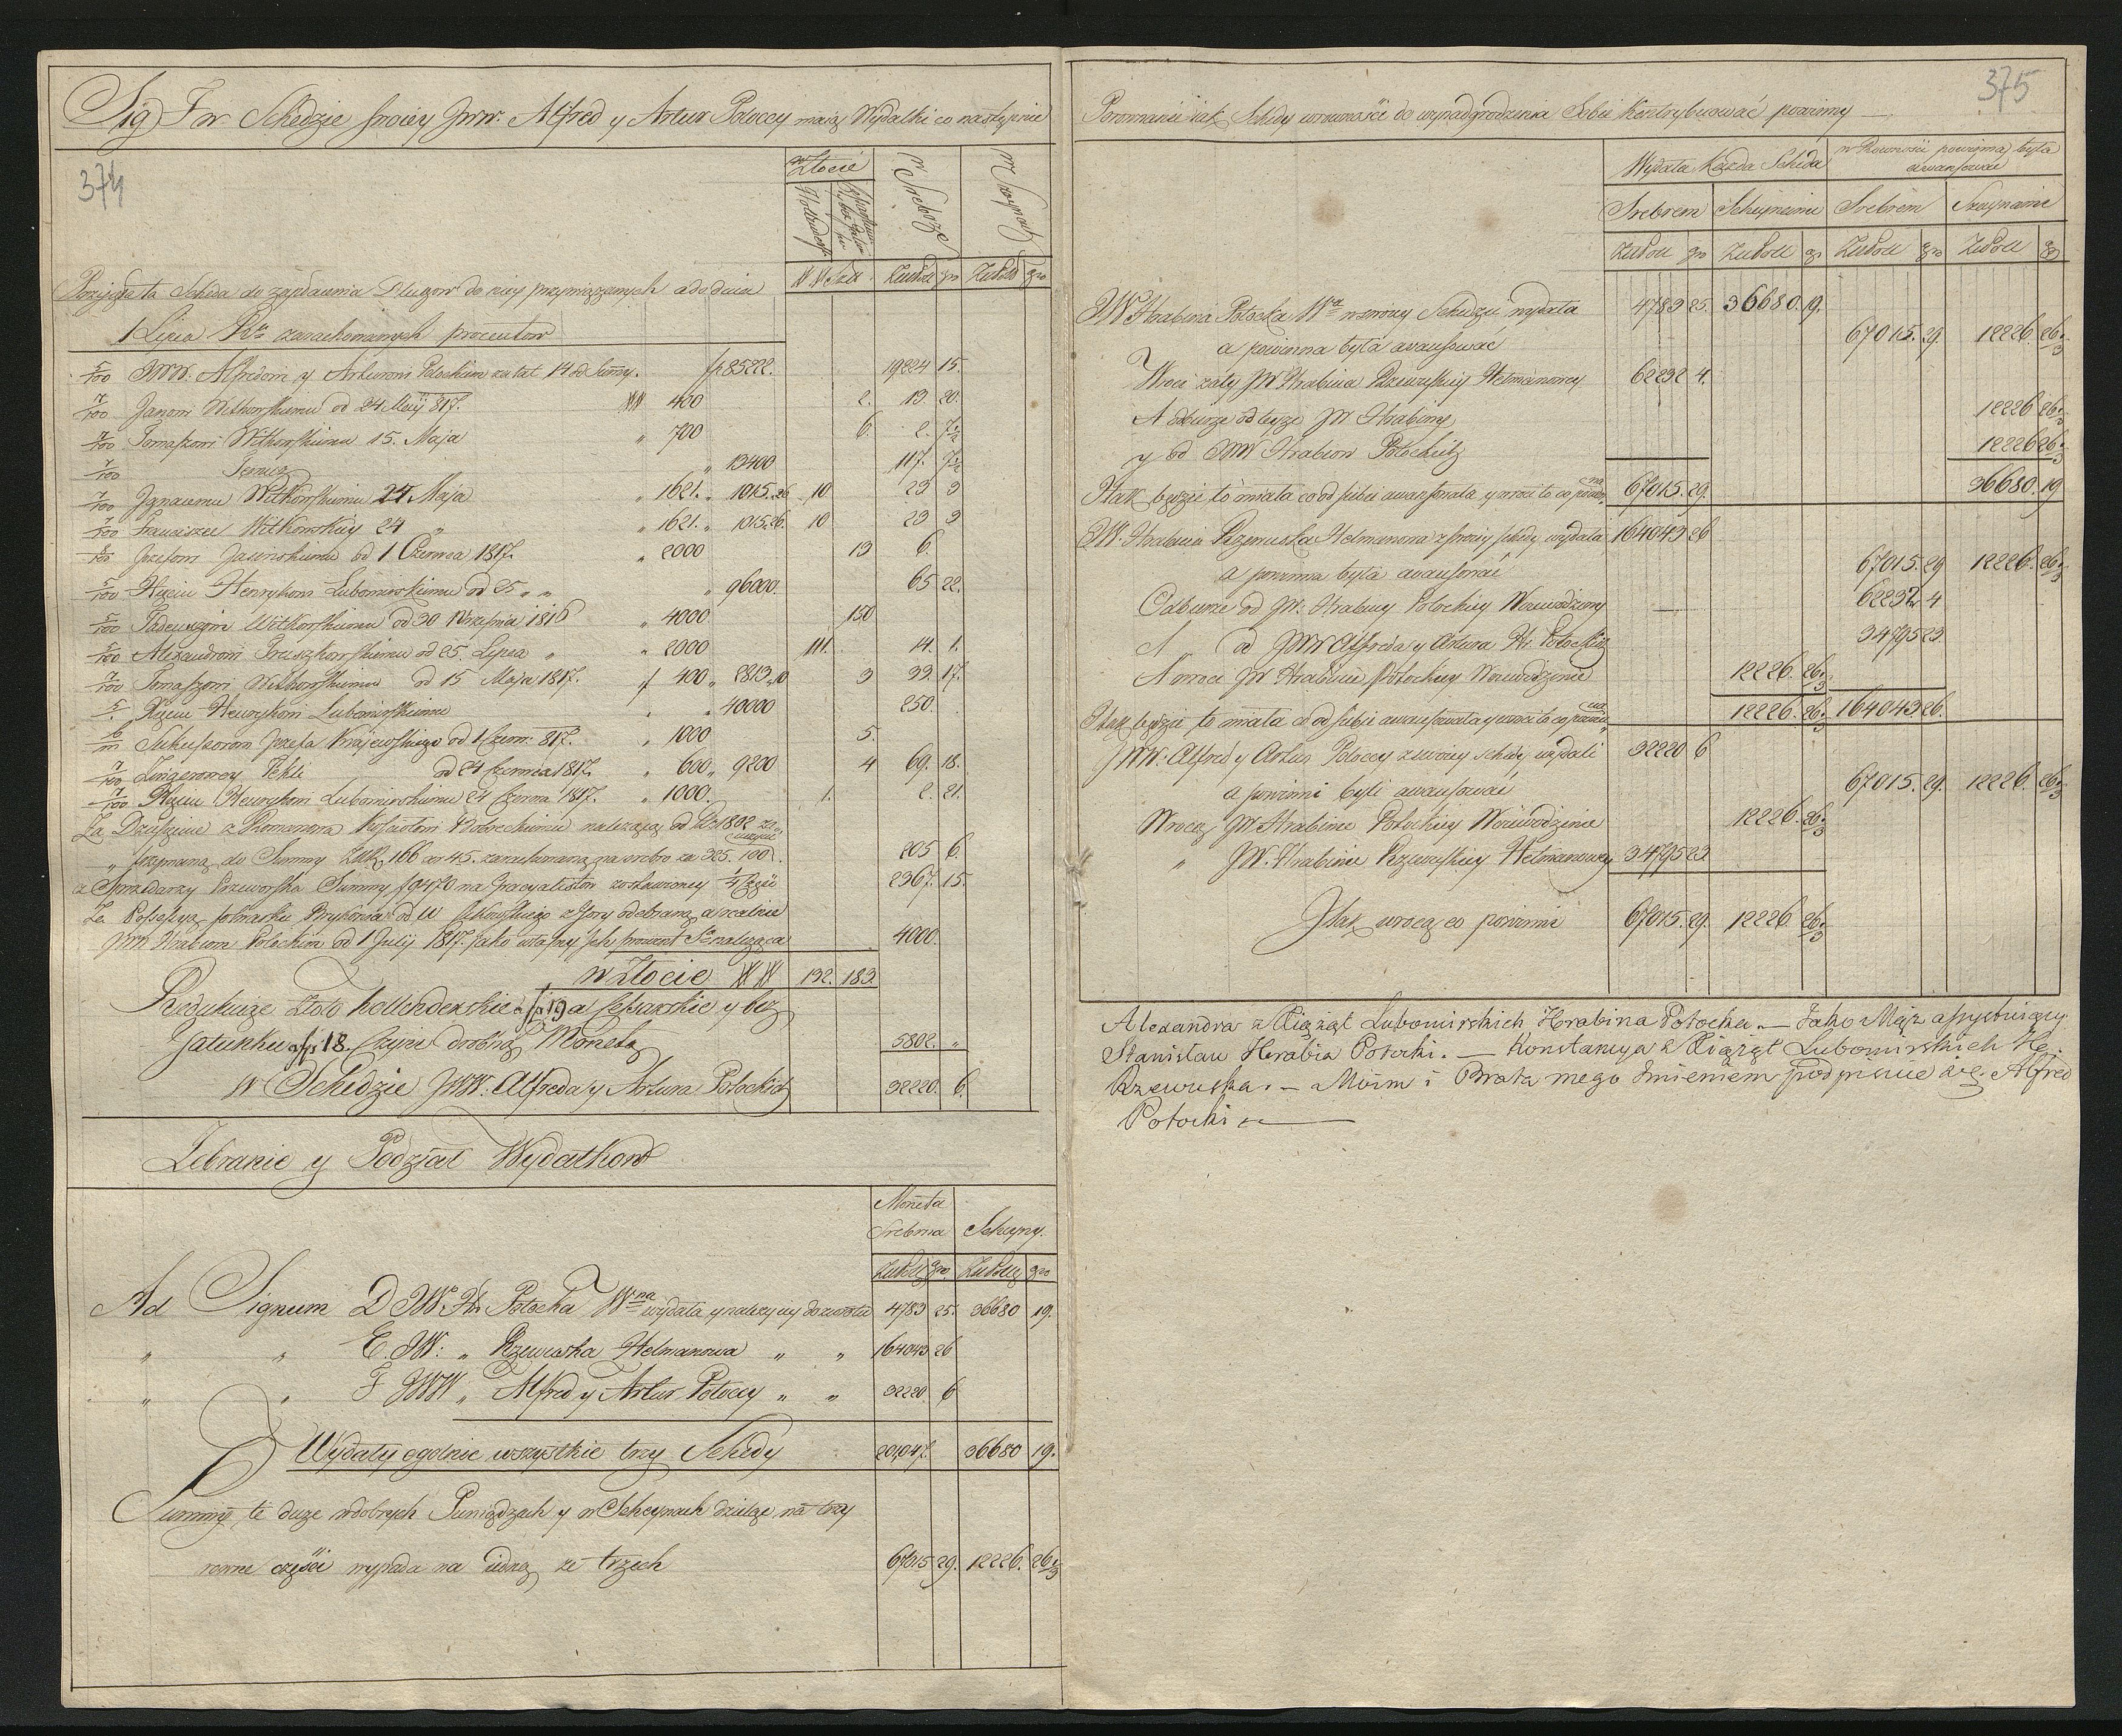 Sig F w Schedzie swoiey JWW. Alfred y Artur Potoccy maią Wydatki co następuie
374
w Złocie
w Srebrze
w Scheynach
## Szt Zł Poll gr Zł Poll gr
Przyięła ta Scheda do zapłacenia Długow do niey przywiązanych a do dnia
1 Lipca zarachowanych procentow
5/100 JWW. Alfredowi y Arturowi Potockim za lat 14 od Summy. f 85222. 19224 15.
7/100 Janowi Witkowskiemu od 24 Maij 817. ## 400 2. 13. 20.
7/100 Tomaszowi Witkowskiemu 15. Maja " 700 6. 2. 7 1/2
7/100 Temuz " 13400 117. 7 1/2
7/100 Ignacemu Witkowskiemu 24 Maja " 1621. " 1015.26 10 23 3
7/100 Franciszce Witkowskiey 24 " " 1621. " 1015.26. 10 23 3
6/100 Jozefowi Jawirskiemu od 1 Czerwca 1817. " 2000 13 6.
5/100 Xięciu Henrykowi Lubomirskiemu od 25 " " " 96000. 65 22.
5/100 Tadeuszowi Witkowskiemu od 30 Września 1816 " 4000 150
5/100 Alexandrowi Truszkowskiemu od 25. Lipca " " 2000 111. 14. 1.
7/100 Tomaszowi Witkowskiemu od 15 Maja 1817. f 400 " 2813 10 3 33. 17.
5/. Xięciu Henrykowi Lubomirskiemu " " 40000 250.
6/m Sukcessorom Jozefa Krajewskiego od 1 Czerw: 817. " 1000 5.
7/100 Zingerowey Tekli od 24 Czerwca 1817. " 600 " 9200 4 69. 18.
7/100 Xięciu Henrykowi Lubomirskiemu 24 Czerwca 1817. " 1000. 1. 2. 21.
Za Dziesięcinę z Romanowa Kościołowi Dobrechiemu należącą od 1802
" trzymaną do Summy Złk 166 xr 45. zarachowaną na srebro za 325. 100. 205 6.
z Sprzedarzy Przeworska Summy f 9470 na Gracyalistow zostawioney 1/4 Część 2367. 15.
Za Possessyą folwarku Brykonia od a realnie
JWW Hrabiom Potockim od 1 Julij 1817. jako własny Ich procent Se należąca 4000.
w Złocie ## 132. 183.
Redukuąc Złoto hollenderskie a f 19 a Cesarskie y bez
Gatunku a f 18. czyni drobną Monetą 5802. "
w Schedzie JWW. Alfreda y Artura Potockich 32220. 6.
Zebranie y Podział Wydatkow
Moneta Srebrna Scheyny.
Zł Poll gro Zł Poll gro
Ad Signum D JW. Hr. Potocka Wna wydała y należy iey do zwrotu 4783 25. 36680 19.
" " E. JW: " Rzewuska Hetmanowa " " 164043 26
" " F JWW " Alfred y Artur Potoccy " " 32220. 6
Wydały ogolnie wszystkie trzy Schedy 201,047. 36680 19.
Summy te dwie w dobrych Pieniądzach y w Scheynach dzieląc na trzy
rowne części wypada na iedną ze trzech 67015 29. 12226. 26 2/3
375
Porownanie iak Schedy w rowności do wynadgrodzenia Sobie kontrybuować powinny
Wydała Każda Scheda w Rowności powinna była awansować
Srebrem Scheynami Srebrem Scheynami
Zł Poll gro Zł Poll gr Zł Poll gro Zł Poll gr
JW Hrabina Potocka Wa w swoiey Schedzie wydała 4783 25. 36680. 19.
a powinna była awansować 67015. 29. 12226. 26 2/3
Wroci zatym JW Hrabinie Rzewuskiey Hetmanowey 62232 4.
A odbierze od teyze JW Hrabiny 12226 26 2/3
y od JWW Hrabiow Potockich 12226 26 2/3
I tak będzie to miała co od siebie awansowała y wroci to co powinna 67015. 29. 36680. 19
JW. Hrabina Rzewuska Hetmanowa z swoiey schedy wydała 164043 26
a powinna była awansować 67015. 29 12226. 26 2/3
Odbierze od JW. Hrabiny Potockiey Woiewodziny 62232 4
A od JWW Alfreda y Artura Hr. Potockich 34795 23
A wroci JW Hrabinie Potockiey Woiewodzinie 12226. 26 2/3
I tak będzie to miała co od siebie awansowała y wroci to co powinna 12226. 26 2/3 164043 26.
JWW. Alfred y Artur Potoccy z swoiey schedy wydali 32220 6
a powinni byli awansować 67015. 29. 12226. 26 2/3
Wrocą JW Hrabinie Potockiey Woiewodzinie 12226. 26 2/3
" JW. Hrabinie Rzewuskiey Hetmanowey 34795 23
I tak wrocą co powinni 67015. 29. 12226. 26 2/3
Alexandra z Xiążąt Lubomirskich Hrabina Potocka. — Jako Mąż assystuiący
Stanisław Hrabia Potocki. — Konstancya z Xiążąt Lubomirskich He.
Rzewuska. — Moim i Brata mego Imieniem podpisuię się. Alfred
Potocki